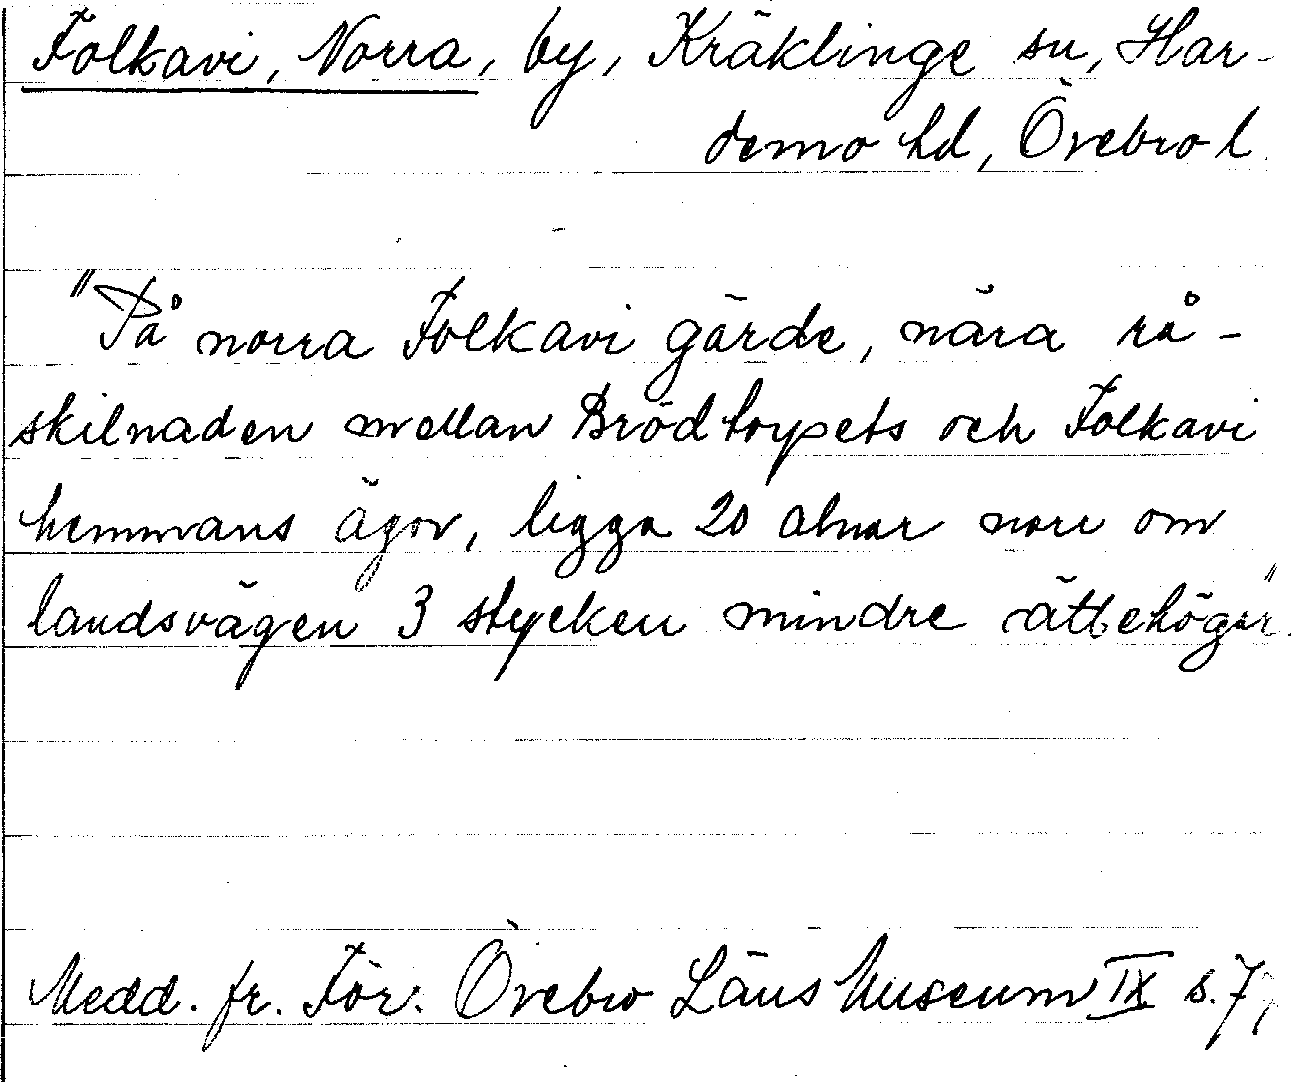 Folkavi, Norra, by, Kräklinge sn, Har-
demo hd, Örebro l.
"På norra Folkavi gärde, nära rå-
skilnaden mellan Brödtorpets och Folkavi
hemmans ägor, ligga 20 alnar norr om
landsvägen 3 stycken mindre ättehögar".
Medd. fr. För. Örebro Läns Museum IX s. 7,